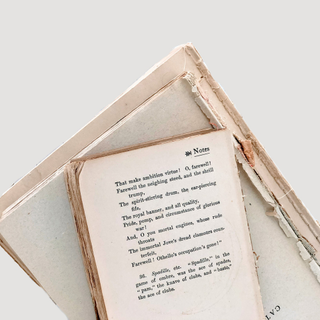 Notes
That make ambition virtue! O, farewell!
Farewell the neighing steed, and the shrill
trump,
The spirit-stirring drum, the ear-piercing
fife,
The royal banner, and all quality,
Pride, pomp, and circumstance of glorious
war!
And, O you mortal engines, whose rude
throats
The immortal Jove's dread clamours coun-
terfeit,
Farewell! Othello's occupation's gone!"
36. Spadille, etc. "Spadille," in the
game of ombre, was the ace of spades,
"pam," the knave of clubs, and "basto,"
the ace of clubs.
CAT